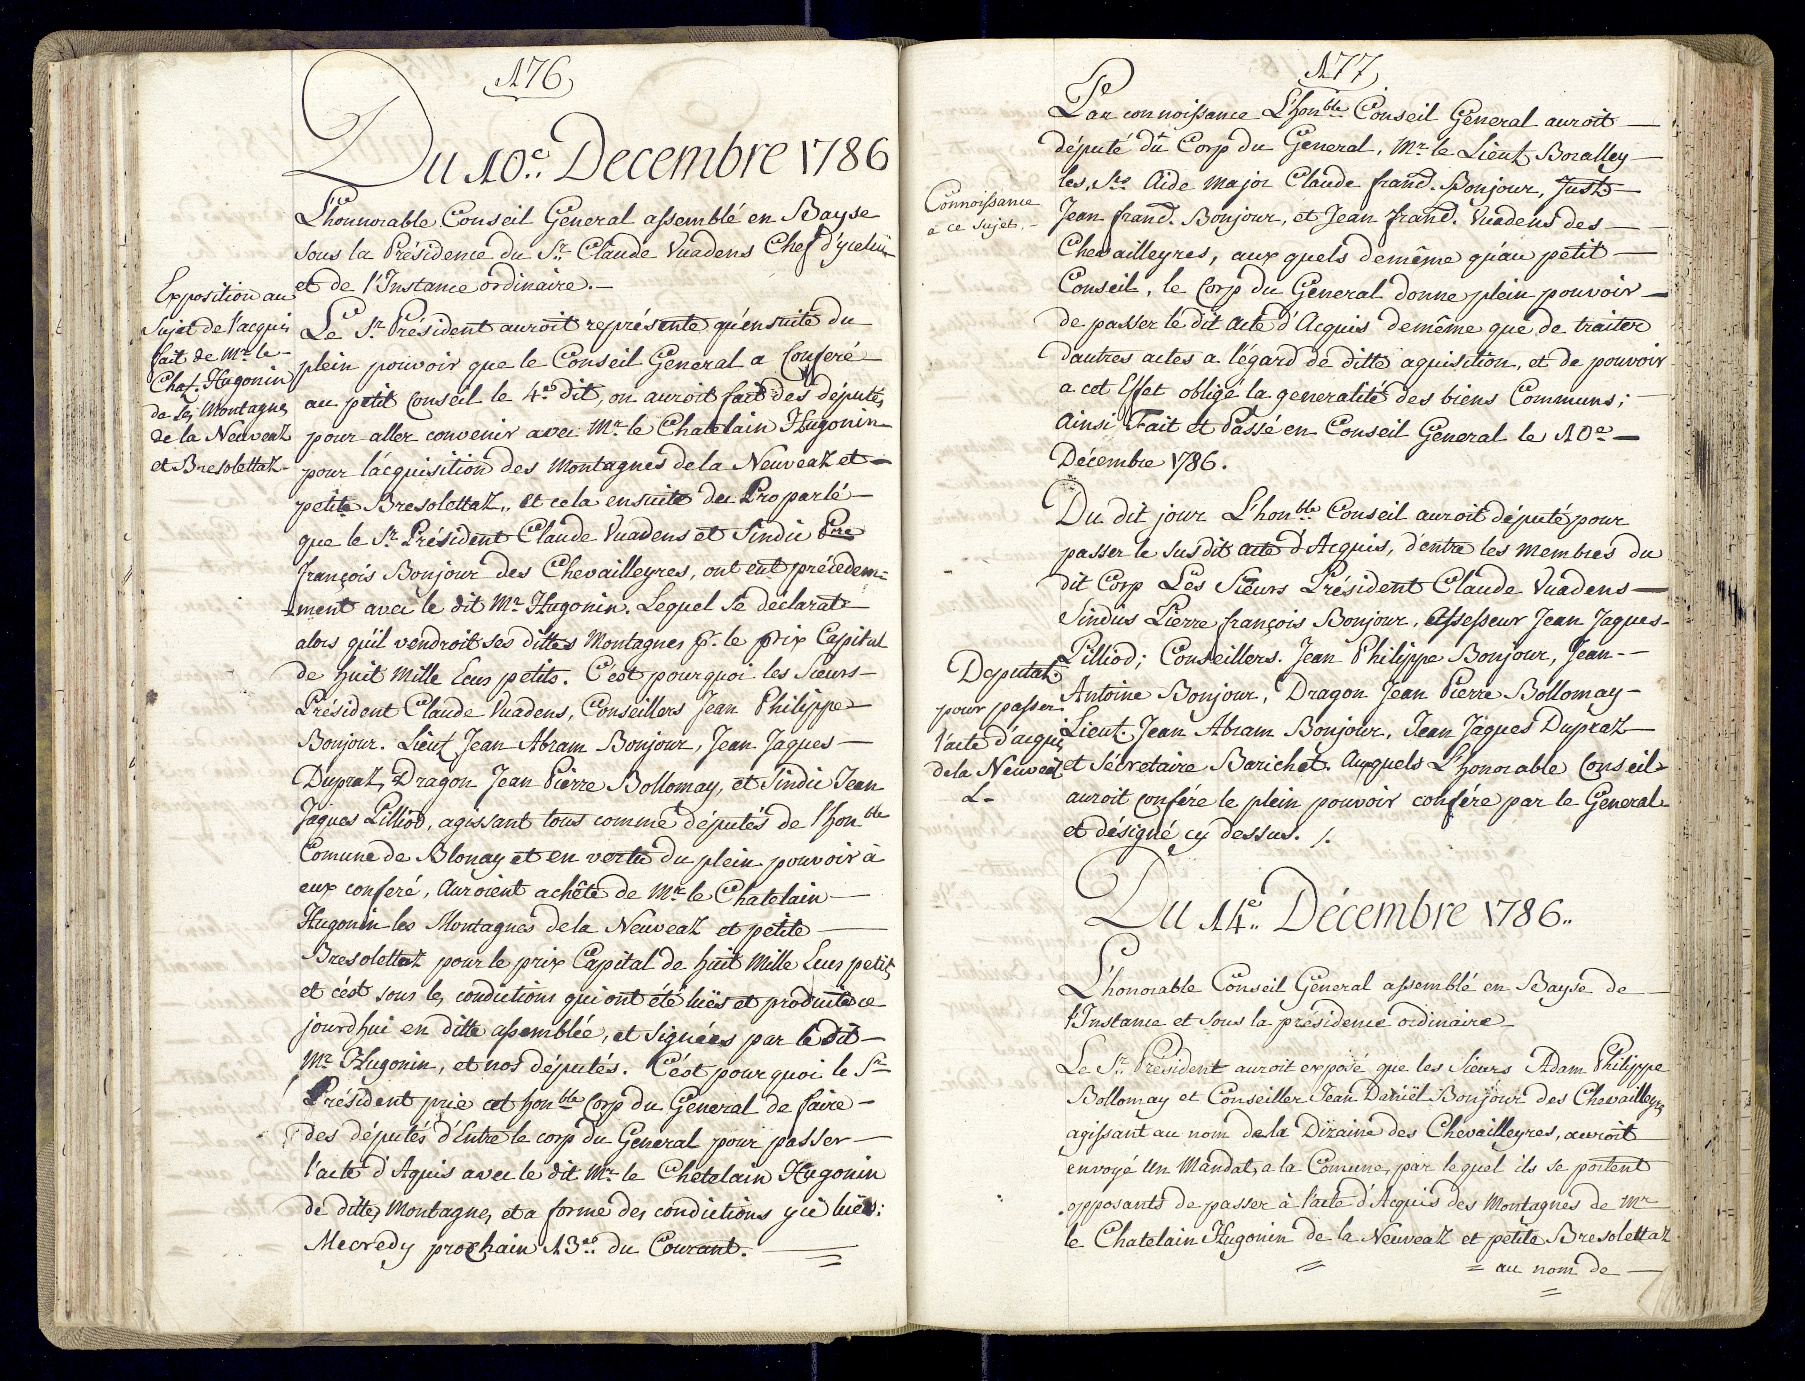 176
Du 10.e Decembre 1786
L'honnorable Conseil General assemblé en Bayse
sous la Présidence du Sr. Claude Vuadens Chef d'yceluy
et de l'Instance ordinaire.
Exposition au
Sujet de l'acquis
fait de Mr. le
Chat. Hugonin
de ses Montagnes
de la Neuveaz
et Bresolettaz
Le Sr. Président auroit représenté qu'ensuite du
plein pouvoir que le Conseil General a Conferé
au petit Conseil le 4.e dit, on auroit fait des députés
pour aller convenir avec Mr. le Chatelain Hugonin
pour l'acquisition des Montagnes de la Neuveaz et
petite Bresolettaz, et cela ensuite du Proparlé
que le Sr. Président Claude Vuadens et Sindic Pre
François Bonjour des Chevailleyres, ont eut précédem=
=ment avec le dit Mr. Hugonin. Lequel se declarat
alors qu'il vendroit ses dittes Montagnes pr. le prix Capital
de huit Mille Ecus petits. C'est pourquoi les Sieurs
Président Claude Vuadens, Conseillers Jean Philippe
Bonjour. Lieut. Jean Abram Bonjour, Jean Jaques
Dupraz, Dragon Jean Pierre Bollomay, et Sindic Jean
Jaques Pilliod, agissant tous comme députés de l'honble
Comune de Blonay et en vertu du plein pouvoir à
eux conferé, Auroient achêté de Mr. le Chatelain
Hugonin les Montagnes de la Neuveaz et petite
Bresolettaz pour le prix Capital de huit Mille Ecus petits
et c'ést sous les condictions qui ont été luës et produites ce
jourd'hui en ditte assemblée, et signées par le dit
Mr. Hugonin, et nos députés. C'ést pourquoi le Sr.
Président prie cet honble Corp du General de faire
des députés d'Entre le corp du General pour passer
l'acte d'Aquis avec le dit Mr. le Chatelain Hugonin
de dittes Montagnes et a forme des condictions ycì luës:
Mecredy prochain 13.e du Courant.
177
Par connoissance L'honble Conseil General auroit
député du Corp du General, Mr. le Lieut. Boralley
les, Srs. Aide Major Claude franc. Bonjour, Just.
Connoissance
à ce Sujet.
Jean franc. Bonjour, et Jean franc. Vuadens des
Chevailleyres, aux quels demême qu'au petit
Conseil, le Corp du General donne plein pouvoir
de passer le dit Acte d'Acquis demême que de traiter
d'autres actes a l'égard de ditte aquisition, et de pouvoir
a cet Effet obligé la generalité des biens Communs;
Ainsi Fait et Passé en Conseil General le 10.e
Décembre 1786.
Du dit jour L'honble Conseil auroit député pour
passer le susdit acte d'Acquis, d'entre les membres du
dit Corp Les Sieurs Président Claude Vuadens
Sindics Pierre françois Bonjour, Assesseur Jean Jaques
Pilliod; Conseillers. Jean Philippe Bonjour, Jean
Deputat.
pour passer
l'acte d'acquis
de la Neuveaz
Antoine Bonjour, Dragon Jean Pierre Bollomay
Lieut. Jean Abram Bonjour, Jean Jaques Dupraz
et Sécretaire Barichet. Auxquels L'honorable Conseil
auroit confére le plein pouvoir confére par le General
et désigné cy dessus. /.
Du 14.e Décembre 1786..
L'honorable Conseil General assemblé en Bayse de
l'Instance et sous la présidence ordinaire
Le Sr. President auroit exposé que les Sieurs Adam Philippe
Bollomay et Conseiller Jean Daniël Bonjour des Chevailleyres
agissant au nom de la Dizaine des Chevailleyres, auroit
envoyé Un Mandat, a la Comune, par lequel ils se portent
opposants de passer à l'acte d'Acquis des Montagnes de Mr
le Chatelain Hugonin de la Neuveaz et petite Bresolettaz
= au nom de